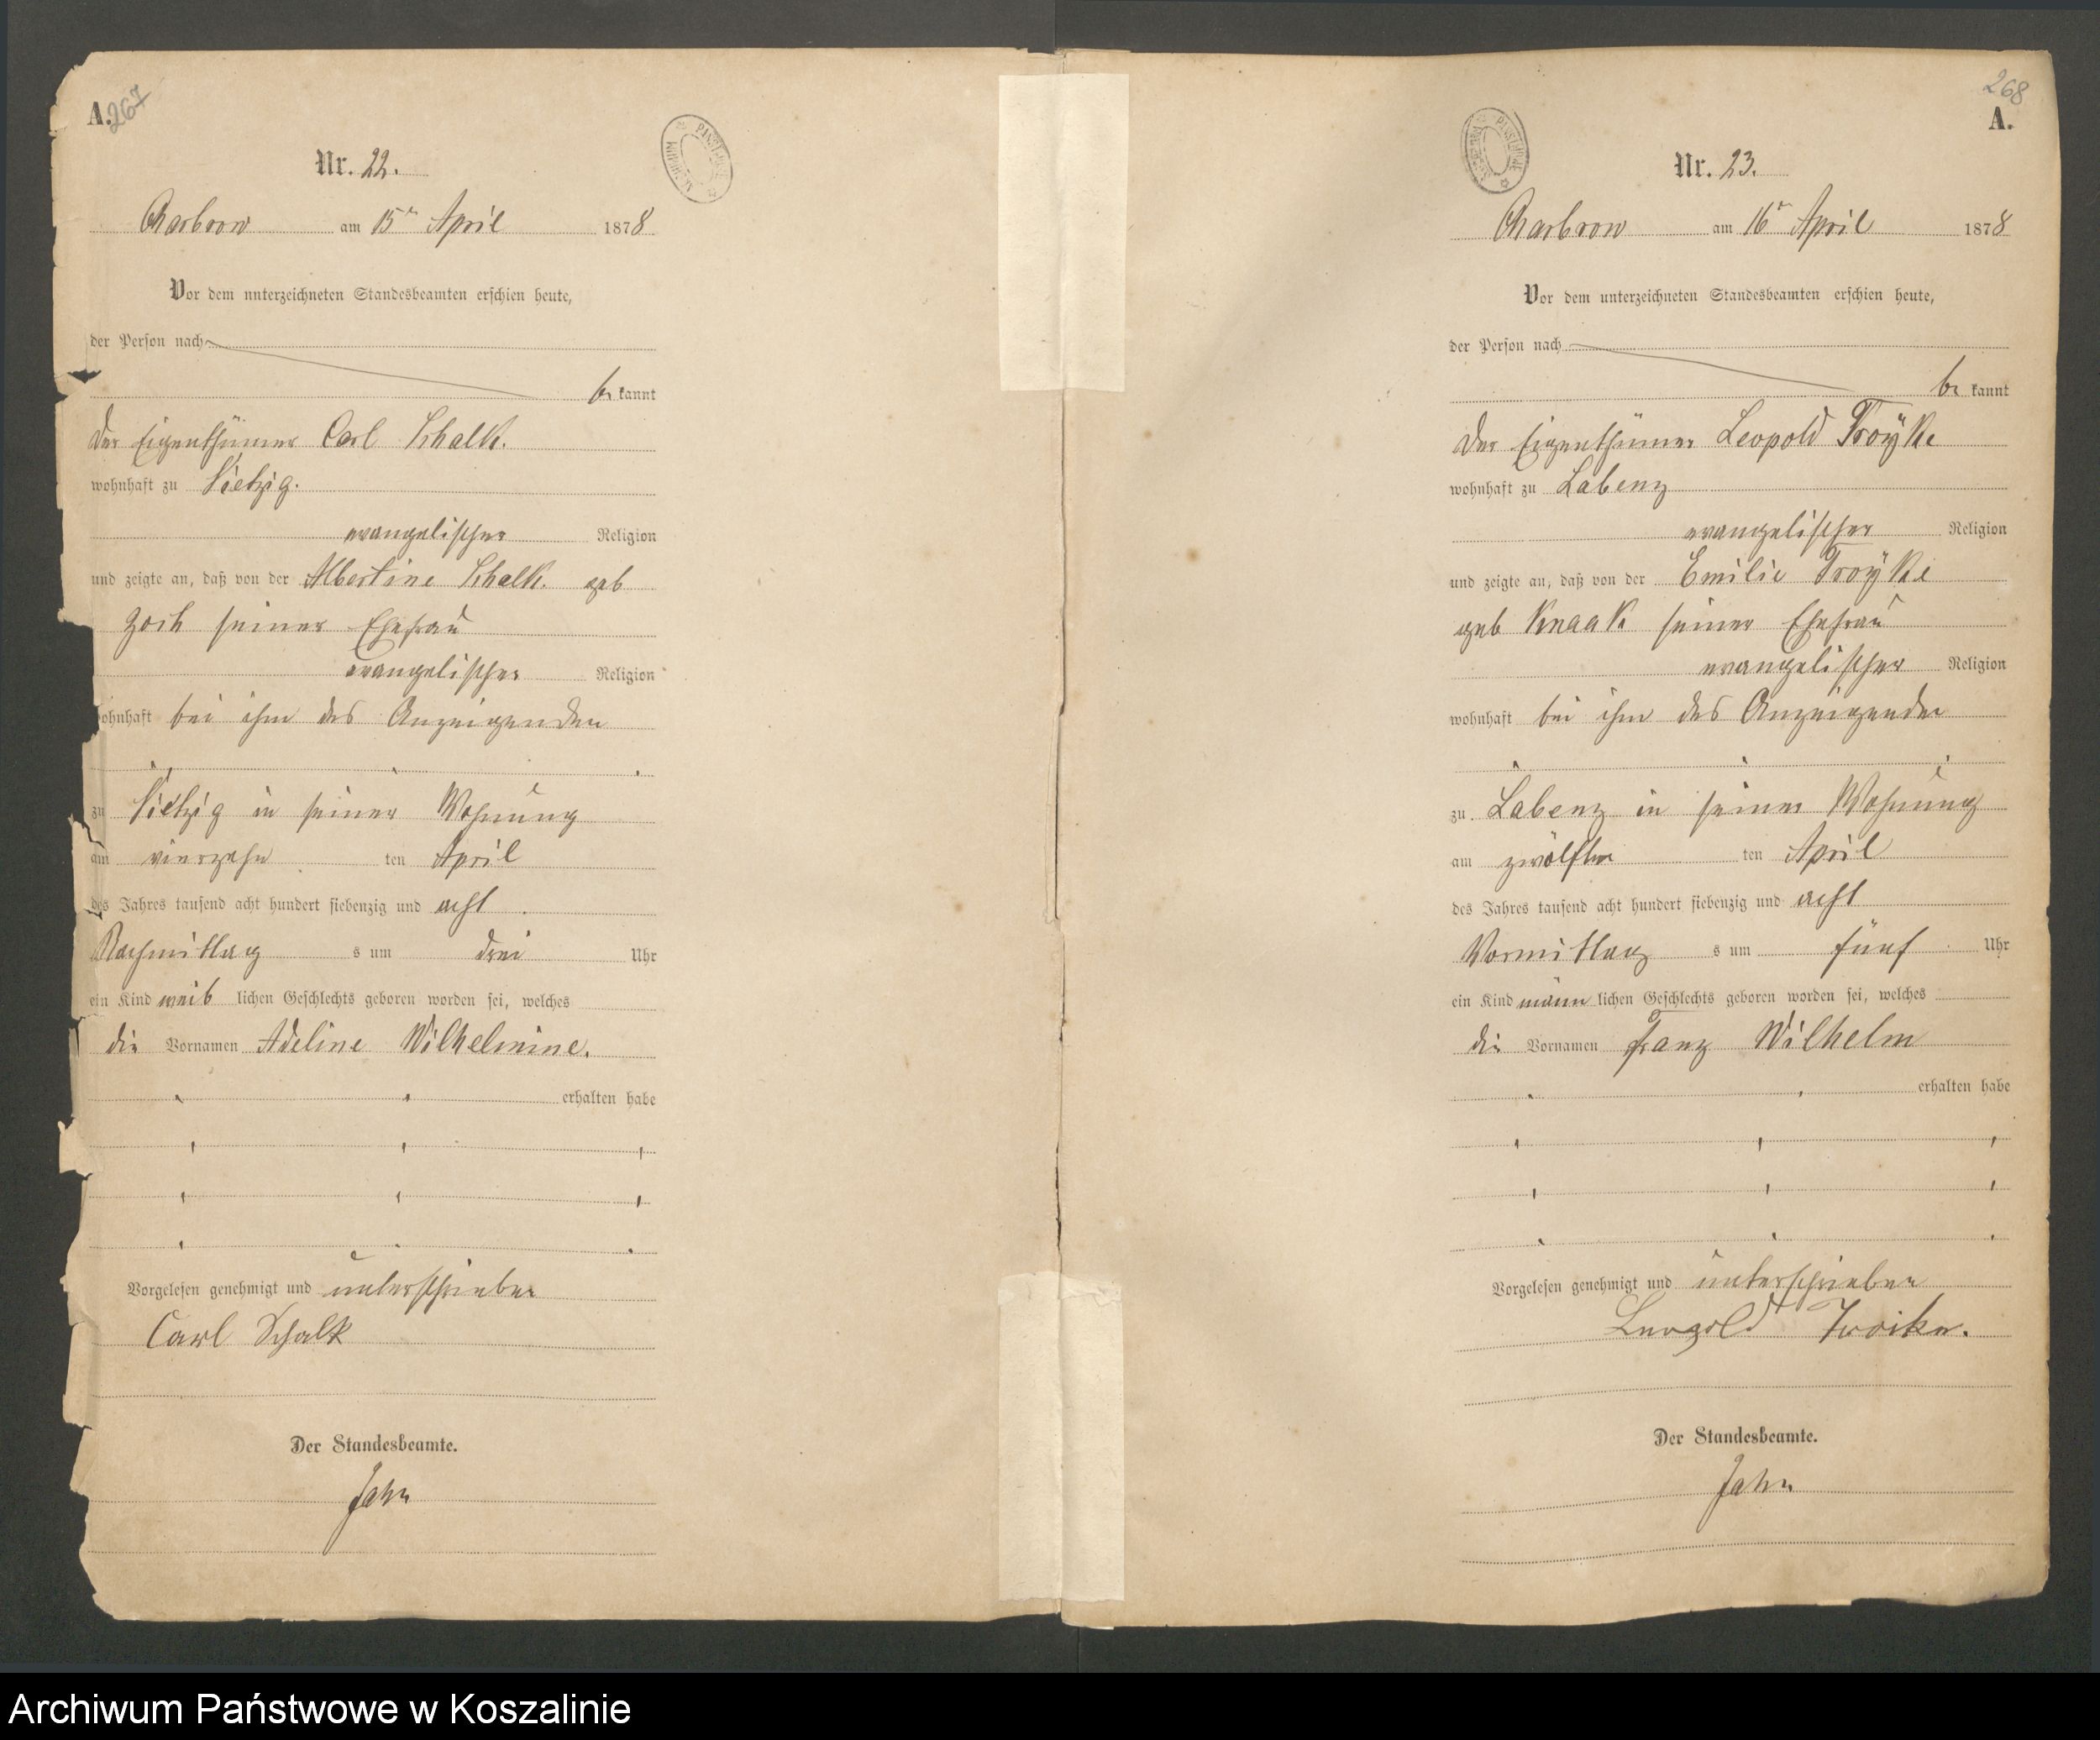 A.
267
Nr. 22.
Charbrow am 15ten April 1878
Vor dem unterzeichneten Standesbeamten erschien heute,
der Person nach
be kannt
der Eigenthümer Carl Schalk.
wohnhaft zu Vietzig.
evangelischer Religion
und zeigte an, daß von der Albertine Schalk. geb
Zoch seiner Ehefrau
evangelischer Religion
wohnhaft bei ihm des Anzeigenden
zu Vietzig in seiner Wohnung
am vierzehn ten April
des Jahres tausend acht hundert siebenzig und acht
Nachmittag s um drei Uhr
ein Kind weib lichen Geschlechts geboren worden sei, welches
die Vornamen Adeline Wilhelmine.
erhalten habe
Vorgelesen genehmigt und unterschrieben
Carl Schalk
Der Standesbeamte.
Jahn
268
A.
Nr. 23.
Charbrow am 16ten April 1878
Vor dem unterzeichneten Standesbeamten erschien heute,
der Person nach
be kannt
der Eigenthümer Leopold Troÿke
wohnhaft zu Labenz
evangelischer Religion
und zeigte an, daß von der Emilie Troÿke
geb Knaak seiner Ehefrau
evangelischer Religion
wohnhaft bei ihm des Anzeigenden
zu Labenz in seiner Wohnung
am zwölften ten April
des Jahres tausend acht hundert siebenzig und acht
Vormittag s um fünf Uhr
ein Kind männ lichen Geschlechts geboren worden sei, welches
die Vornamen Franz Wilhelm
erhalten habe
Vorgelesen genehmigt und unterschrieben
Leopold Troike.
Der Standesbeamte.
Jahn
Archiwum Państwowe w Koszalinie